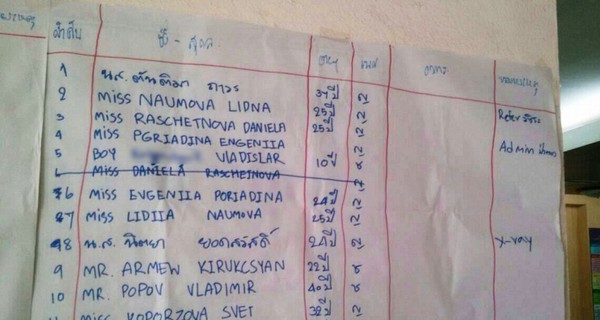 ลำดับ ชื่อ - สกุล อายุ เพศ อาการ หมายเหตุ
1 น.ส. ถาวร 37 ปี ญ
2 MISS NAUMOVA LIDNA 25 ปี ญ Refer
3 MISS RASCHETNOVA DANIELA 25 ปี ญ
4 MISS PGRIADINA ENGENIIA ญ Admin
5 BOY VLADISLAR 10 ปี ช
6 MISS DANIELA RASCHEINOVA ญ
6 MISS EVGENIIA PORIADINA 24 ปี ญ
7 MISS LIDIIA NAUMOVA 25 ปี ญ
8 น.ส. นิตยา ยอดสวัสดิ์ 21 ปี ญ X-ray
9 MR. ARMEW KIRUKCSYAN 22 ปี ช
10 MR. POPOV VLADIMIR 40 ปี ช
MISS KOPORZOVA SVET 38 ปี ญ